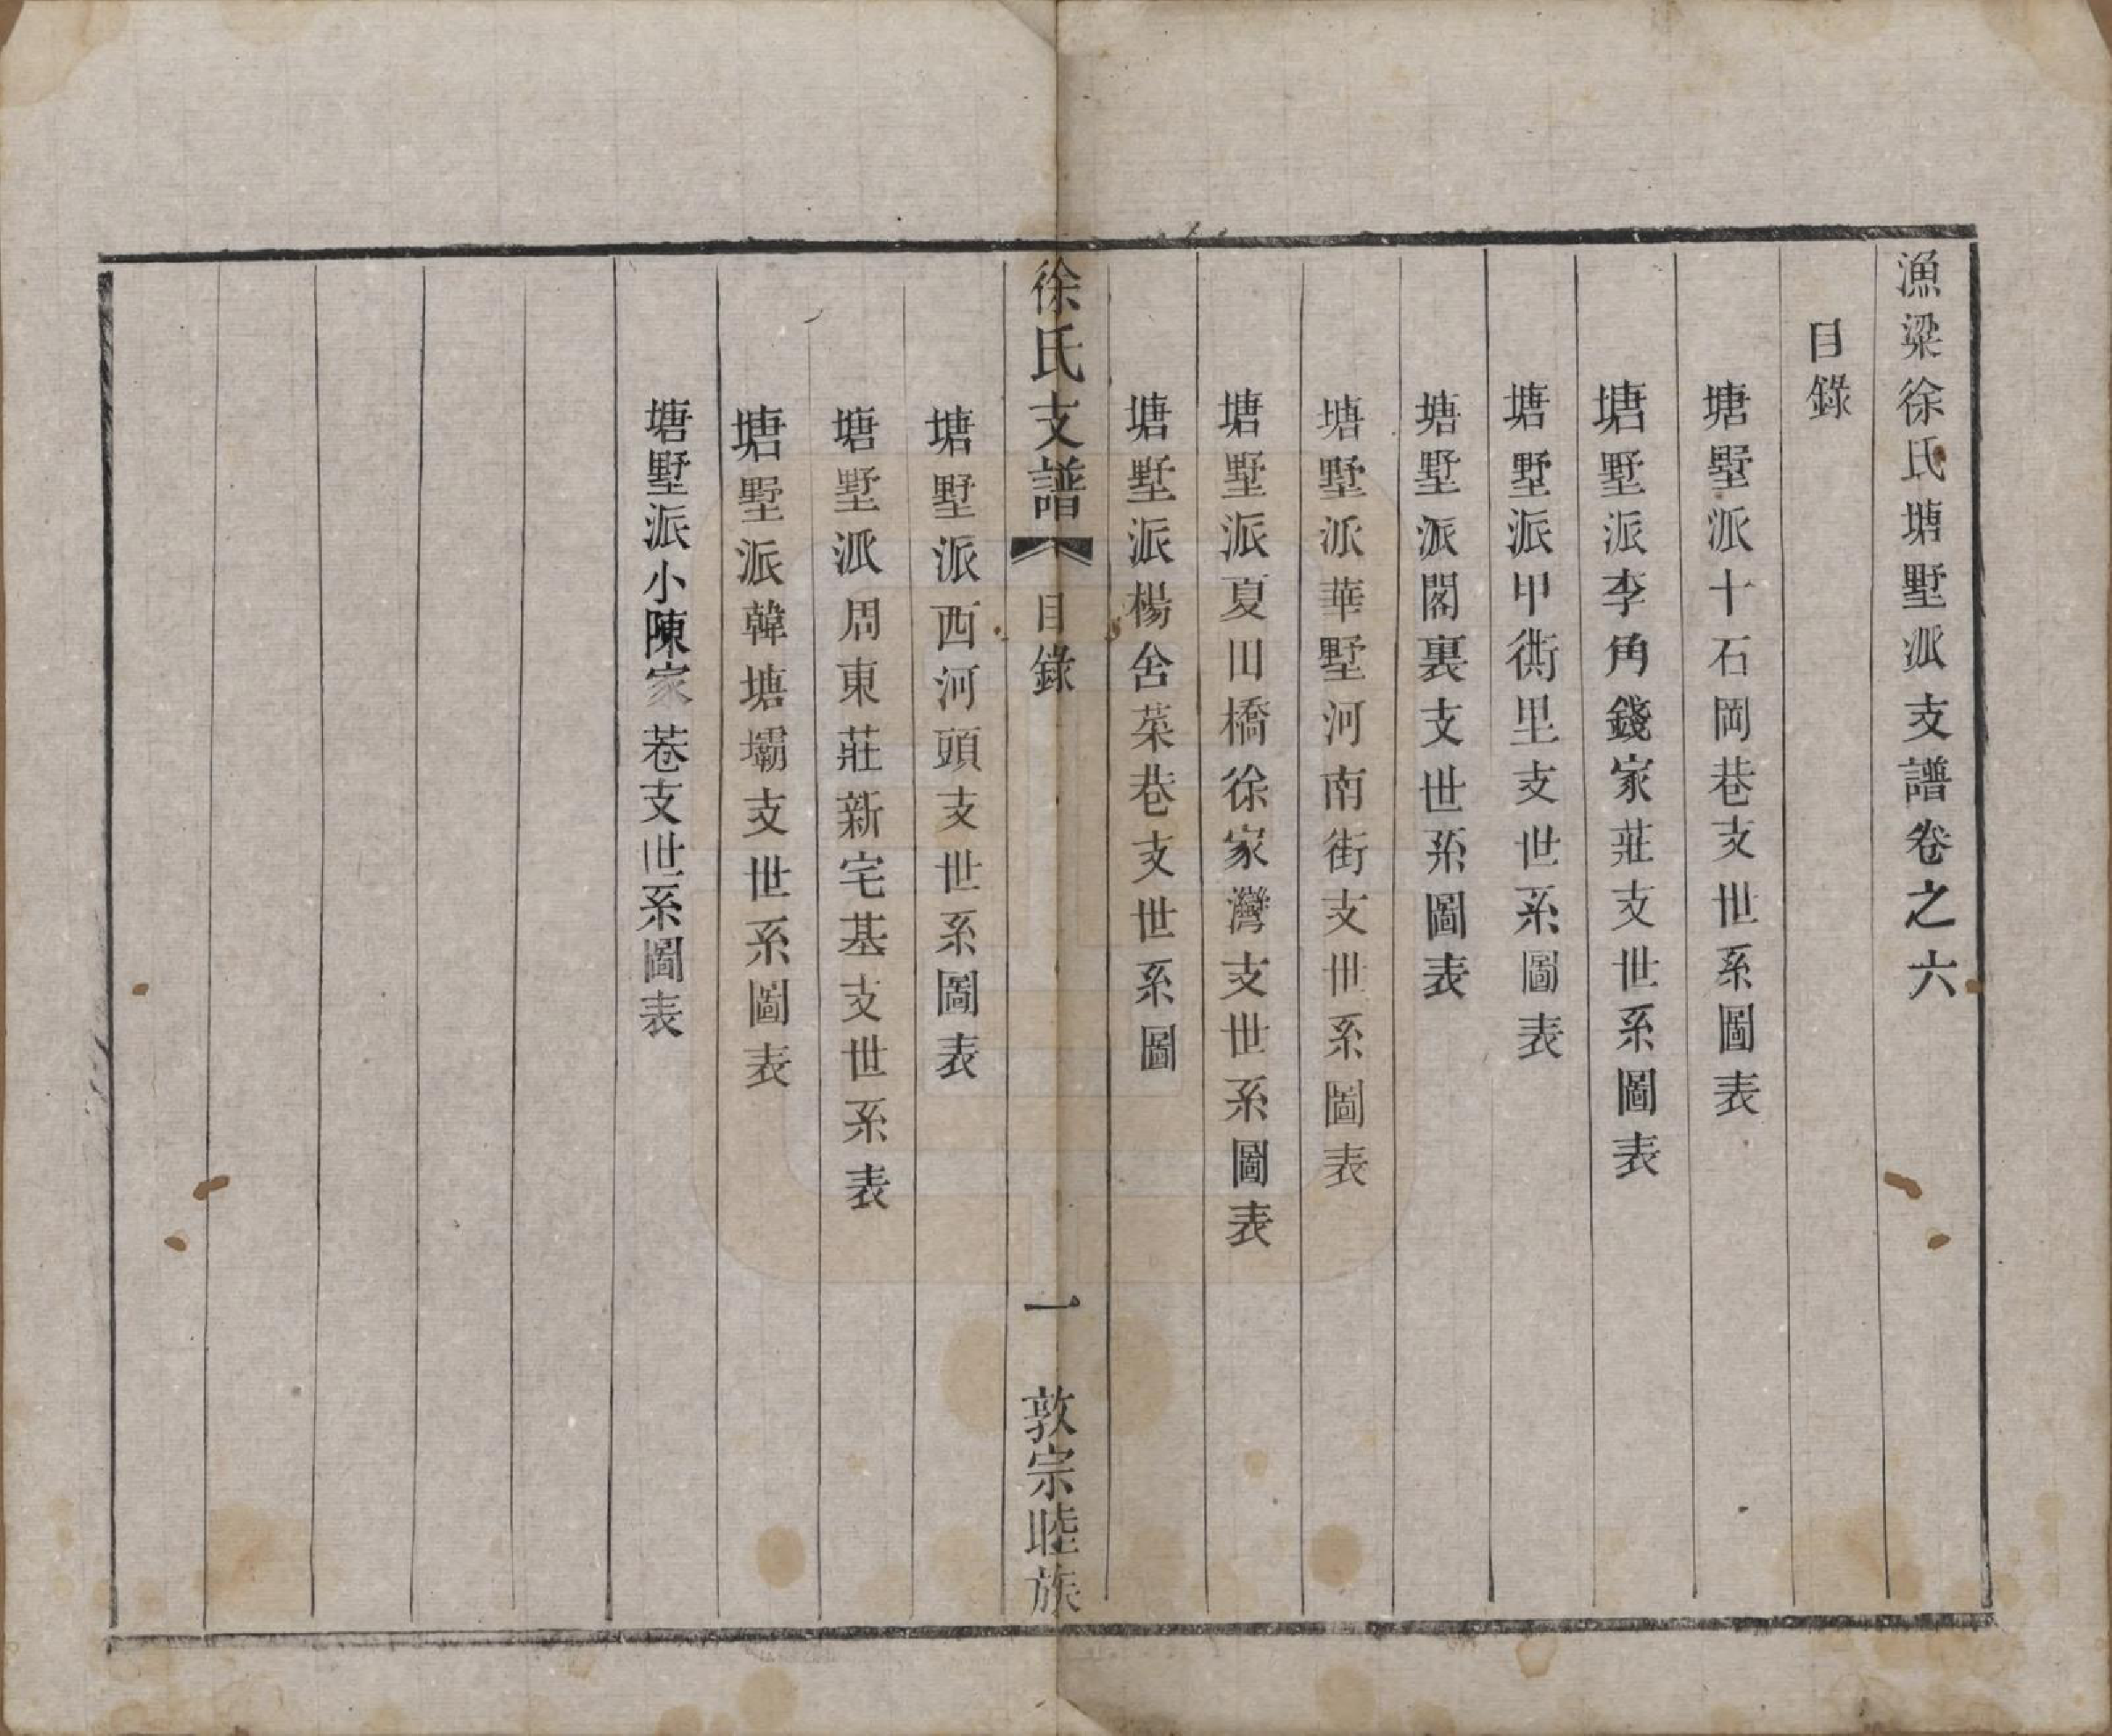 漁梁徐氏塘墅派支譜卷之六
目錄
塘墅派十石岡巷支世系圖表
塘墅派李角錢家莊支世系圖表
塘墅派甲衖里支世系圖表
塘墅派閣裏支世系圖表
塘墅派華墅河南街支世系圖表
塘墅派夏田橋徐家灣支世系圖表
塘墅派楊舍菜巷支世系圖
徐氏支譜 目錄 一 敦宗睦族
塘墅派西河頭支世系圖表
塘墅派周東莊新宅基支世系表
塘墅派韓塘壩支世系圖表
塘墅派小陳家巷支世系圖表